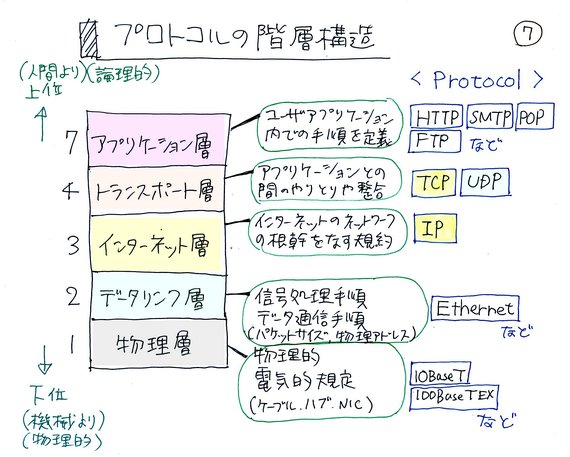 プロトコルの階層構造
7
(人間より)(論理的)
上位
< Protocol >
7 アプリケーション層
ユーザアプリケーション
内での手順を定義
HTTP SMTP POP
FTP など
4 トランスポート層
アプリケーションとの
間のやりとりや整合
TCP UDP
3 インターネット層
インターネットのネットワーク
の根幹をなす規約
IP
2 データリンク層
信号処理手順
データ通信手順
(パケットサイズ、物理アドレス)
Ethernet
など
1 物理層
物理的
電気的規定
(ケーブル、ハブ、NIC)
10BaseT
100BaseTEX
など
下位
(機械より)
(物理的)